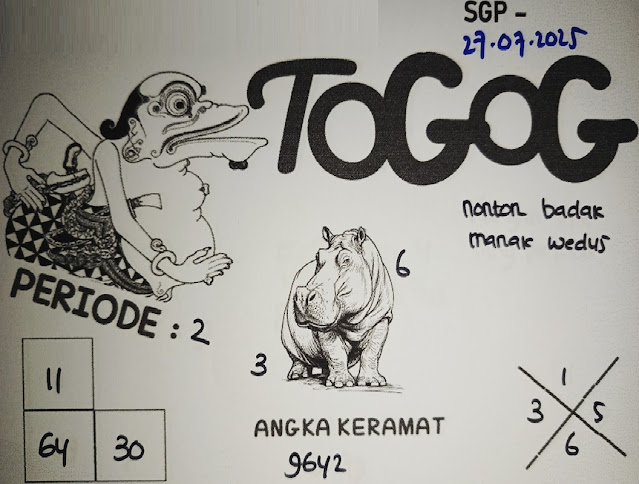 SGP -
27.07.2025
TOGOG
nonton badak
manak wedus
PERIODE : 2
6
3
11
64 30
ANGKA KERAMAT
9642
1
3 5
6